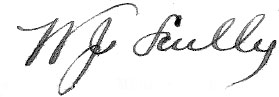 W J Scully